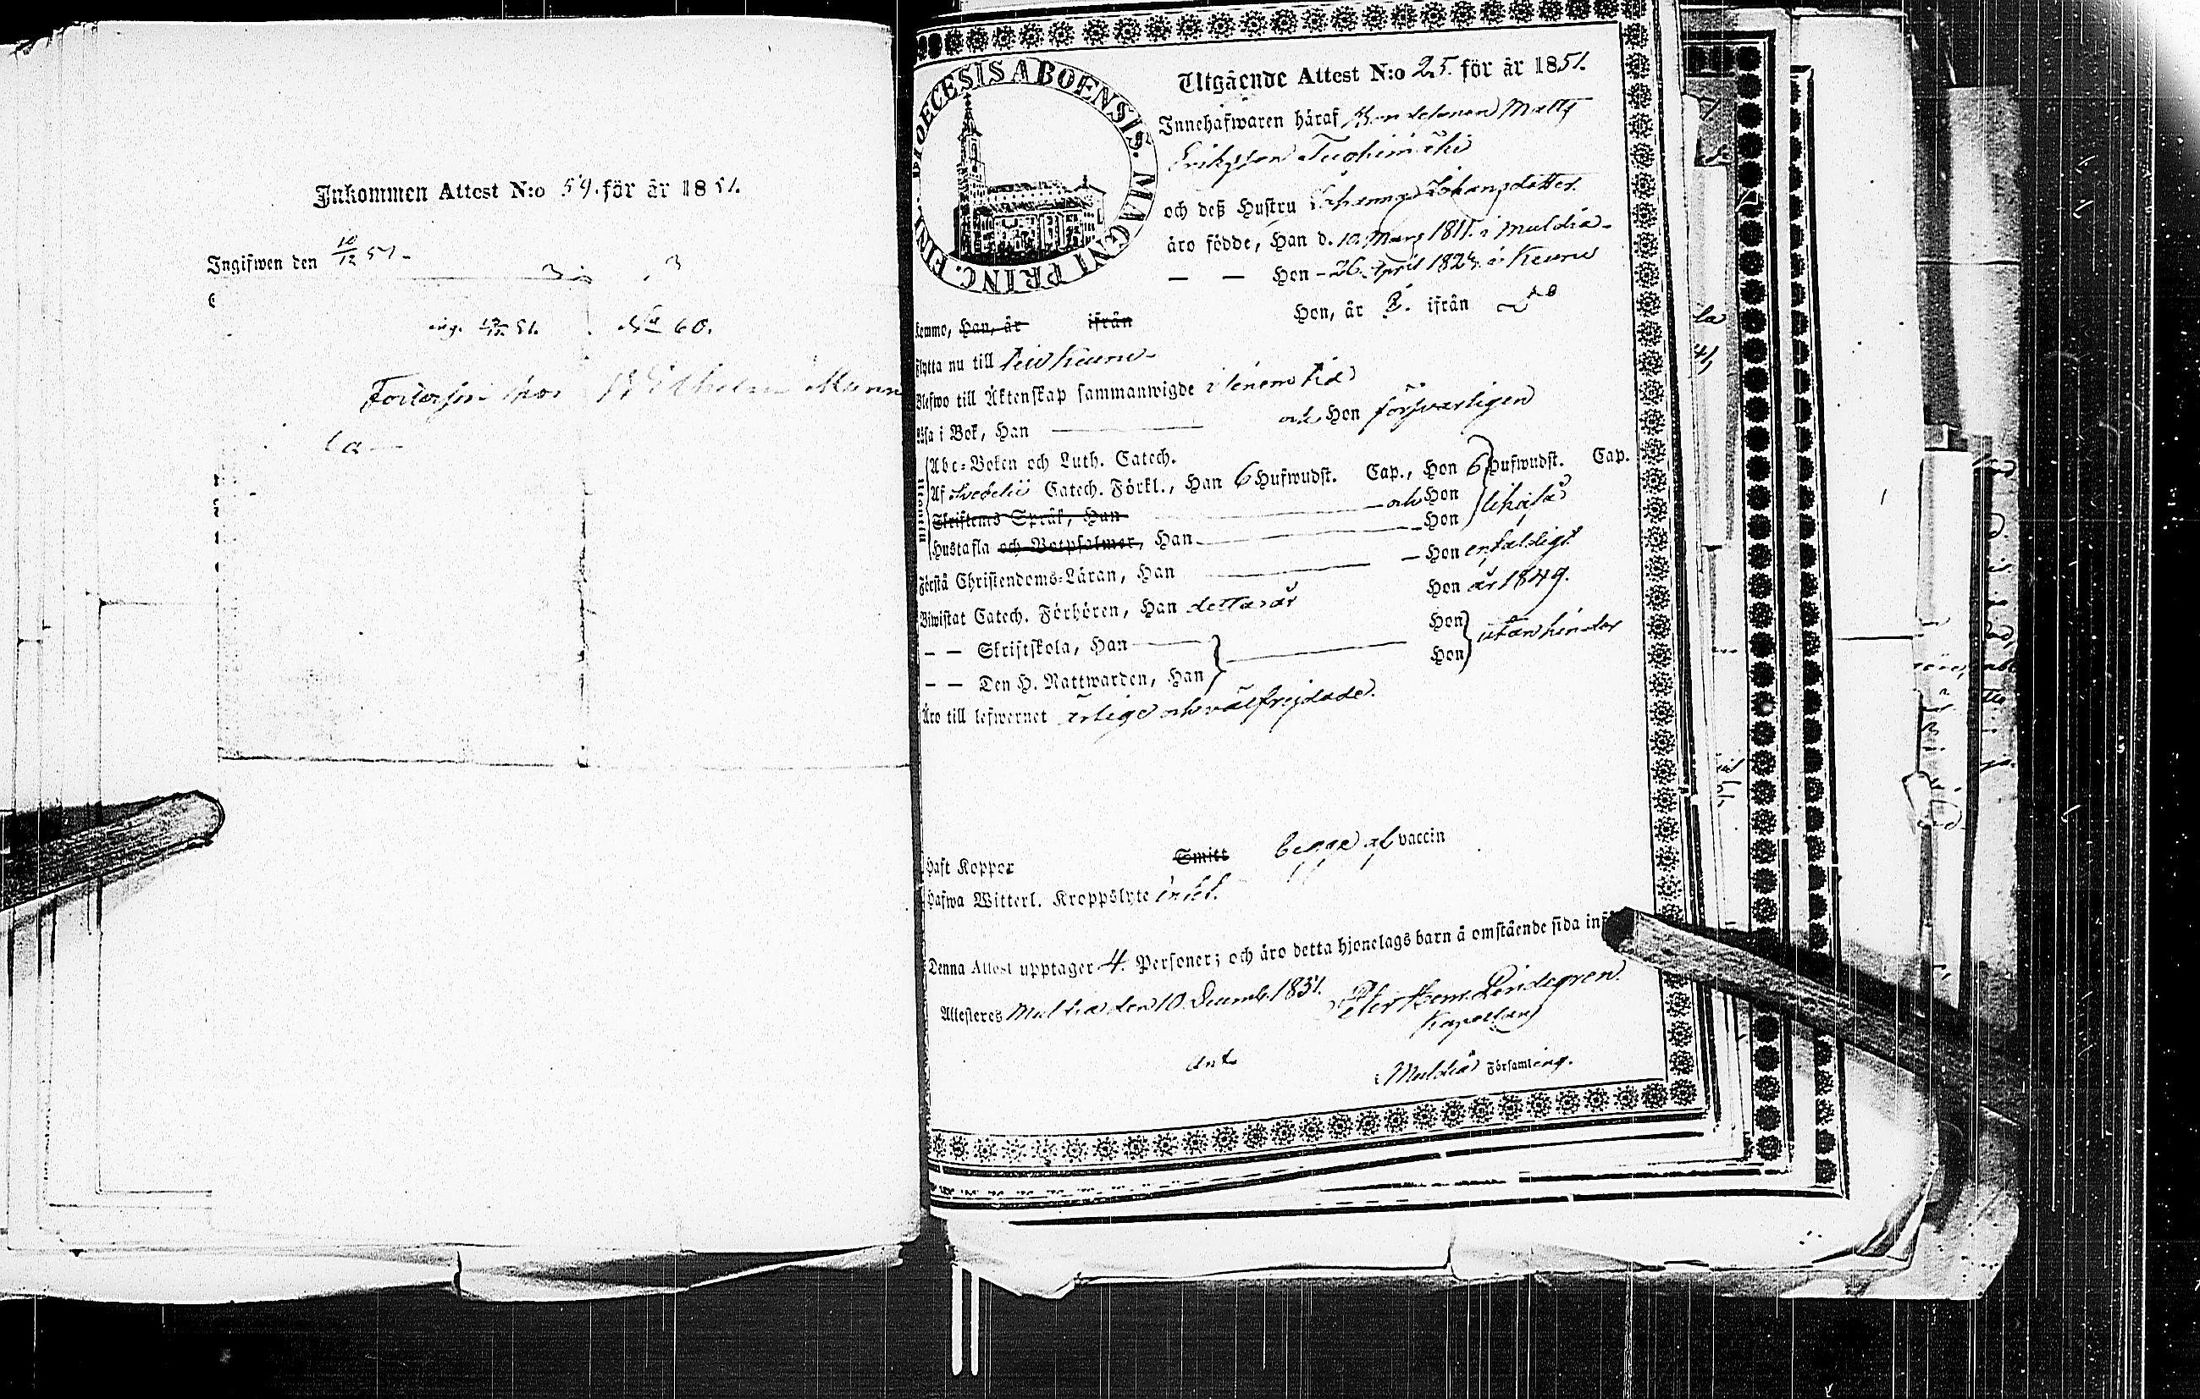 Inkommen Attest N:o 59. för år 1851.
Ingifwen den 10/12 51.
ing. 51. No 60.
Wilhelm
la
DIOECESIS ABOENSIS. MAGNI PRINC. FINL.
Utgående Attest N:o 25. för år 1851.
Innehafwaren häraf Bondesonen Matts
Eriksson
och deß Hustru Johansdotter
äro födde, Han d. 10. Mars 1811. i Muldia
— — Hon - 26 April 1824. i Keuru
Komme, Han, år ifrån Hon, år ifrån
Flytta nu till Keuru
Blefwo till Äktenskap sammanwigde i senom tid
Läsa i Bok, Han och Hon försvarligen
Abc-Boken och Luth. Catech.
Af Svebelii Catech. Förkl., Han 6 Hufwudst. Cap., Hon 6 Hufwudst. Cap.
Skriftens Språk, Han och Hon likaså
Hustafla och Botpsalmer, Han Hon
Förstå Christendoms-Läran, Han Hon enfaldigt
Biwistat Catech. Förhören, Han detta år Hon år 1849.
— — Skriftskola, Han Hon utan hinder
— — Den H. Nattwarden, Han Hon
Äro till lefwernet ärlige och välfrejdade.
Haft Koppor Smitt begge af vaccin
Hafwa Witterl. Kroppslyte intet.
Denna Attest upptager 4. Personer; och äro detta hjonelags barn å omstående sida
Attesteres Muldia den 10. Decemb. 1851. Peter Lindegren
Kapellan
Muldia Församling.